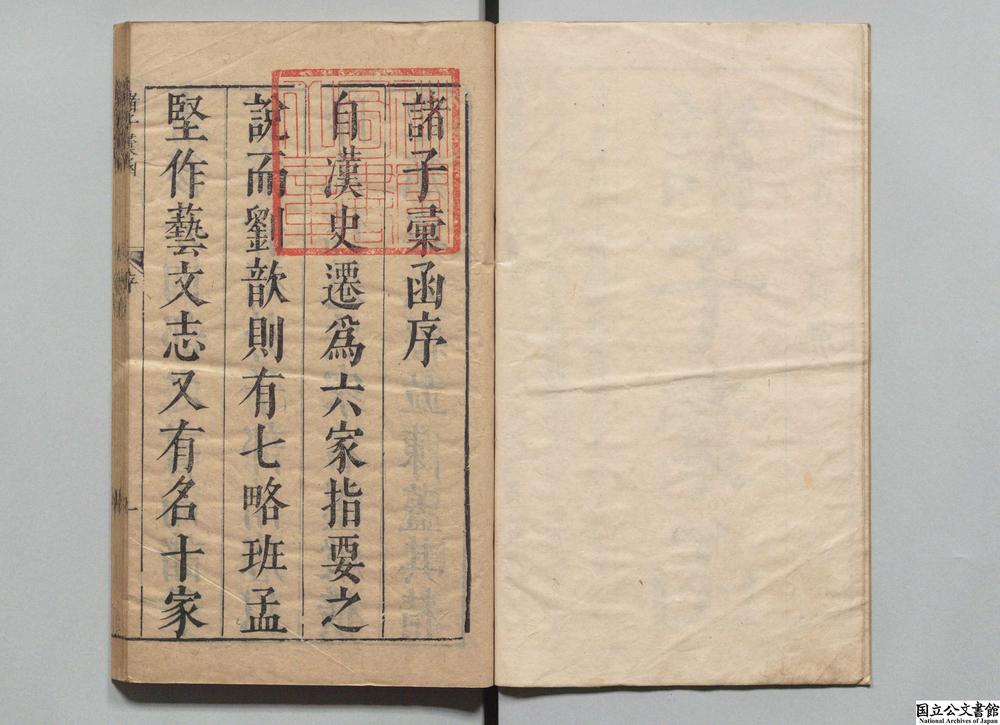 諸子彚函序
自漢史遷爲六家指要之
說而劉歆則有七略班孟
堅作藝文志又有名十家
諸子彚函
序
一
国立公文書館
National Archives of Japan